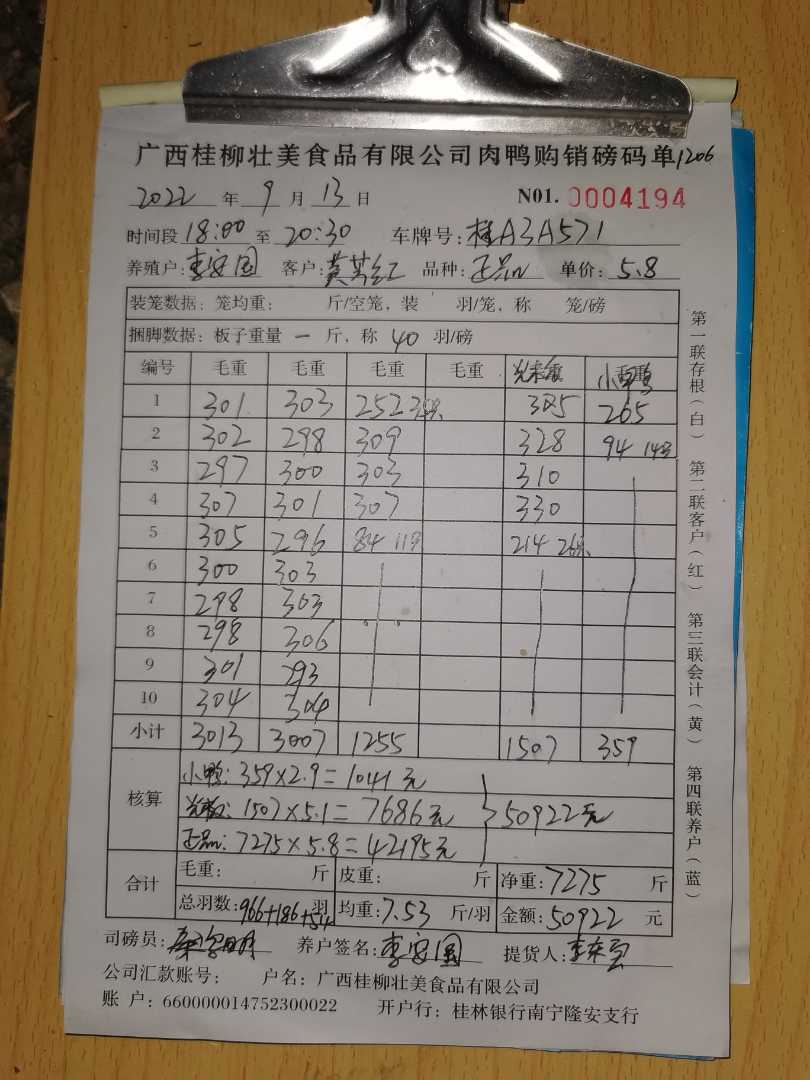 广西桂柳壮美食品有限公司肉鸭购销磅码单1206
2022 年 9 月 13 日 N01. 0004194
时间段 18:00 至 20:30 车牌号: 桂A3A571
养殖户: 李安国 客户: 黄英红 品种: 正品 单价: 5.8
装笼数据: 笼均重: 斤/空笼, 装 羽/笼, 称 笼/磅
捆脚数据: 板子重量 一 斤, 称 40 羽/磅
编号 毛重 毛重 毛重 毛重 小鸭
1 301 303 252 265
2 302 298 309 328 94 14
3 297 300 303 310
4 307 301 307 330
5 305 296 84 11 214 26
6 300 303
7 298 303
8 298 306
9 301 293
10 304 304
小计 3013 3007 1255 1507 359
核算
小鸭: 359×2.9=1041元
1507×5.1=7686元 50922元
正品: 7275×5.8=42195元
合计 毛重: 斤 皮重: 斤 净重: 7275 斤
总羽数: 966+186+54 羽 均重: 7.53 斤/羽 金额: 50922 元
司磅员: 养户签名: 李安国 提货人:
公司汇款账号: 户名: 广西桂柳壮美食品有限公司
账 户: 660000014752300022 开户行: 桂林银行南宁隆安支行
第一联存根(白) 第二联客户(红) 第三联会计(黄) 第四联养户(蓝)